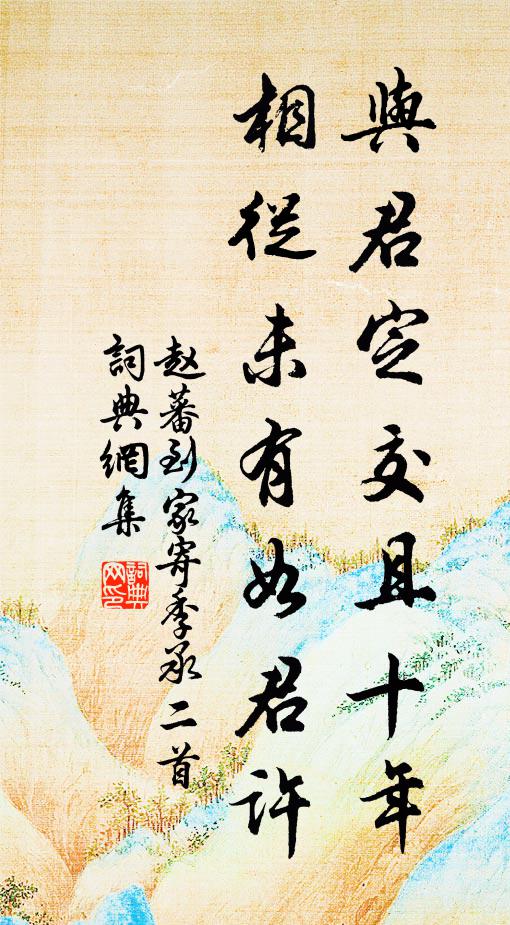 與君定交且十年
相從未有如君許
趙蕃到家寄季承二首
詞典網集
詞典
网印